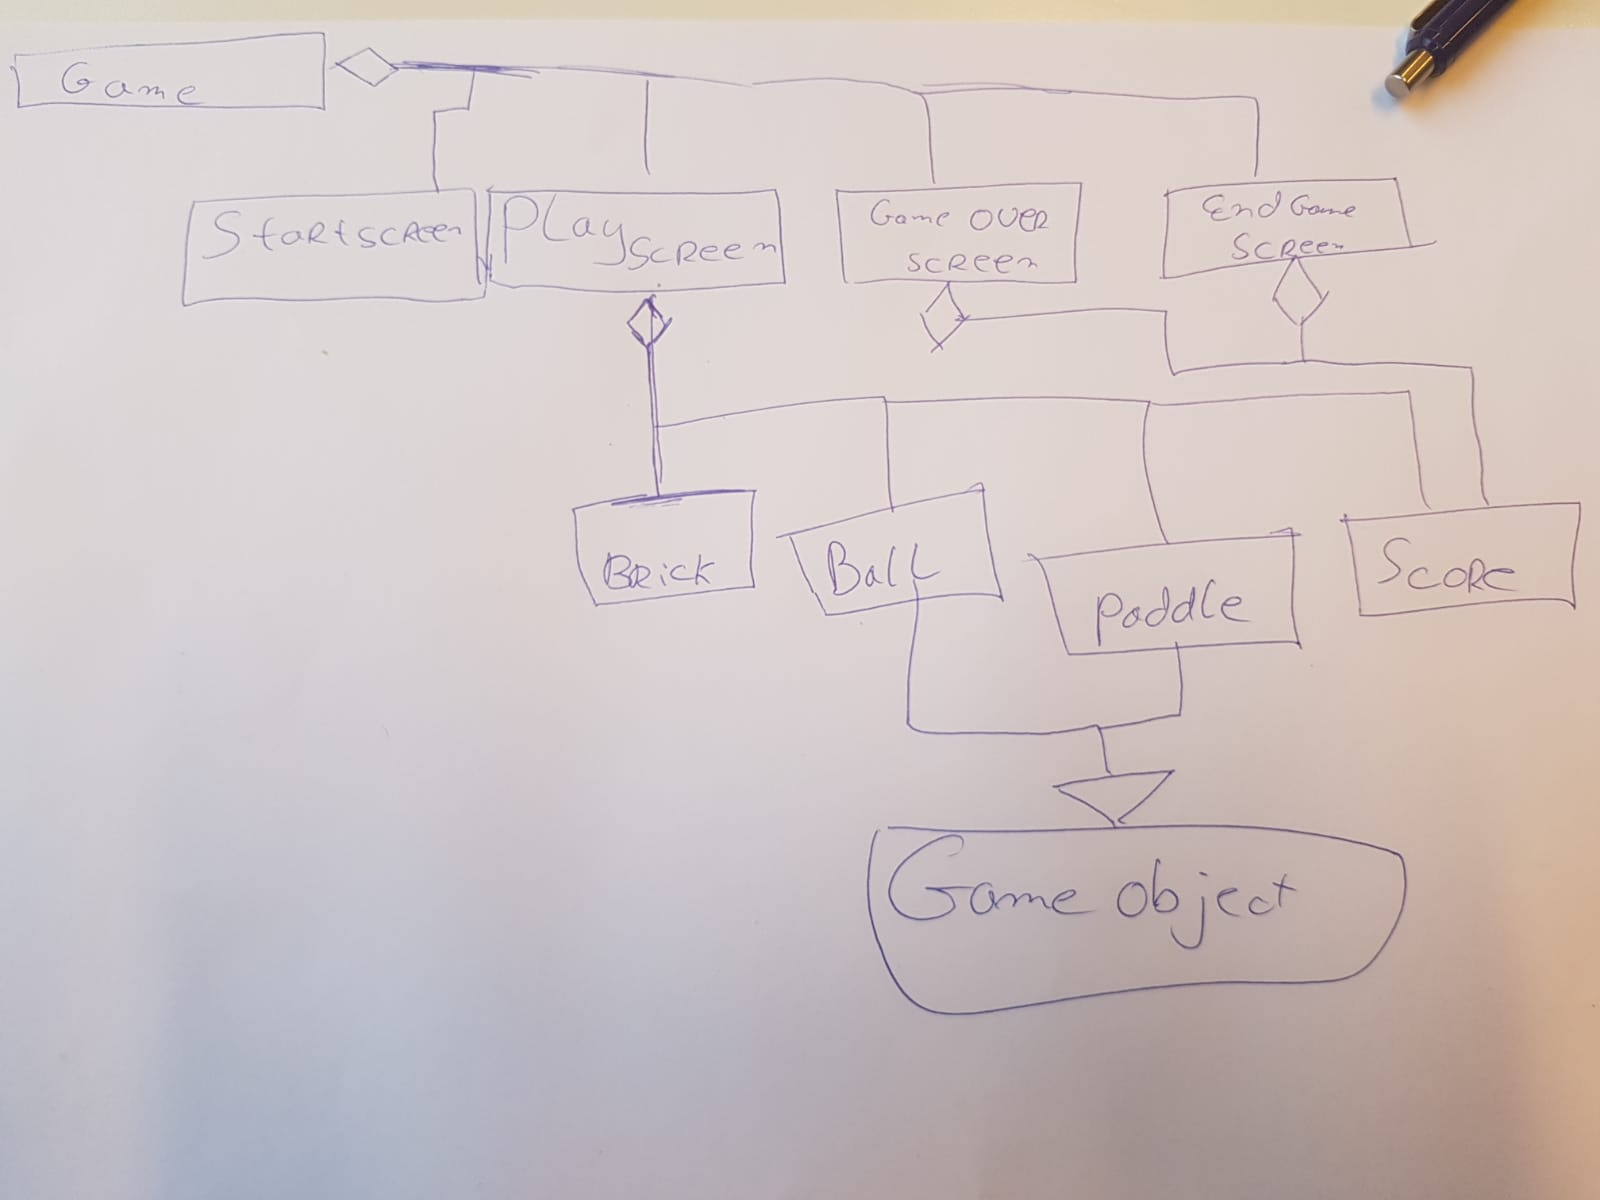 Game
Startscreen
Play
screen
Game over
screen
End Game
screen
Brick
Ball
Paddle
Score
Game object